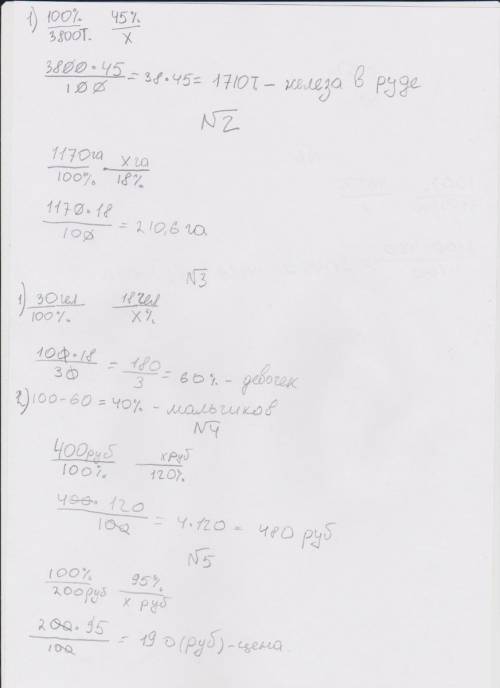 1) 100% / 3800т. 45% / x
3800·45 / 100 = 38·45= 1710т – железа в руде
№2
1170га / 100% x га / 18%
1170·18 / 100 = 210,6 га
№3
1) 30чел / 100% 18чел / x%
100·18 / 30 = 180 / 3 = 60% – девочек
2) 100-60 = 40% – мальчиков
№4
400руб / 100% x руб / 120%
400·120 / 100 = 4·120 = 480 руб
№5
100% / 200руб 95% / x руб
200·95 / 100 = 190(руб)-цена.